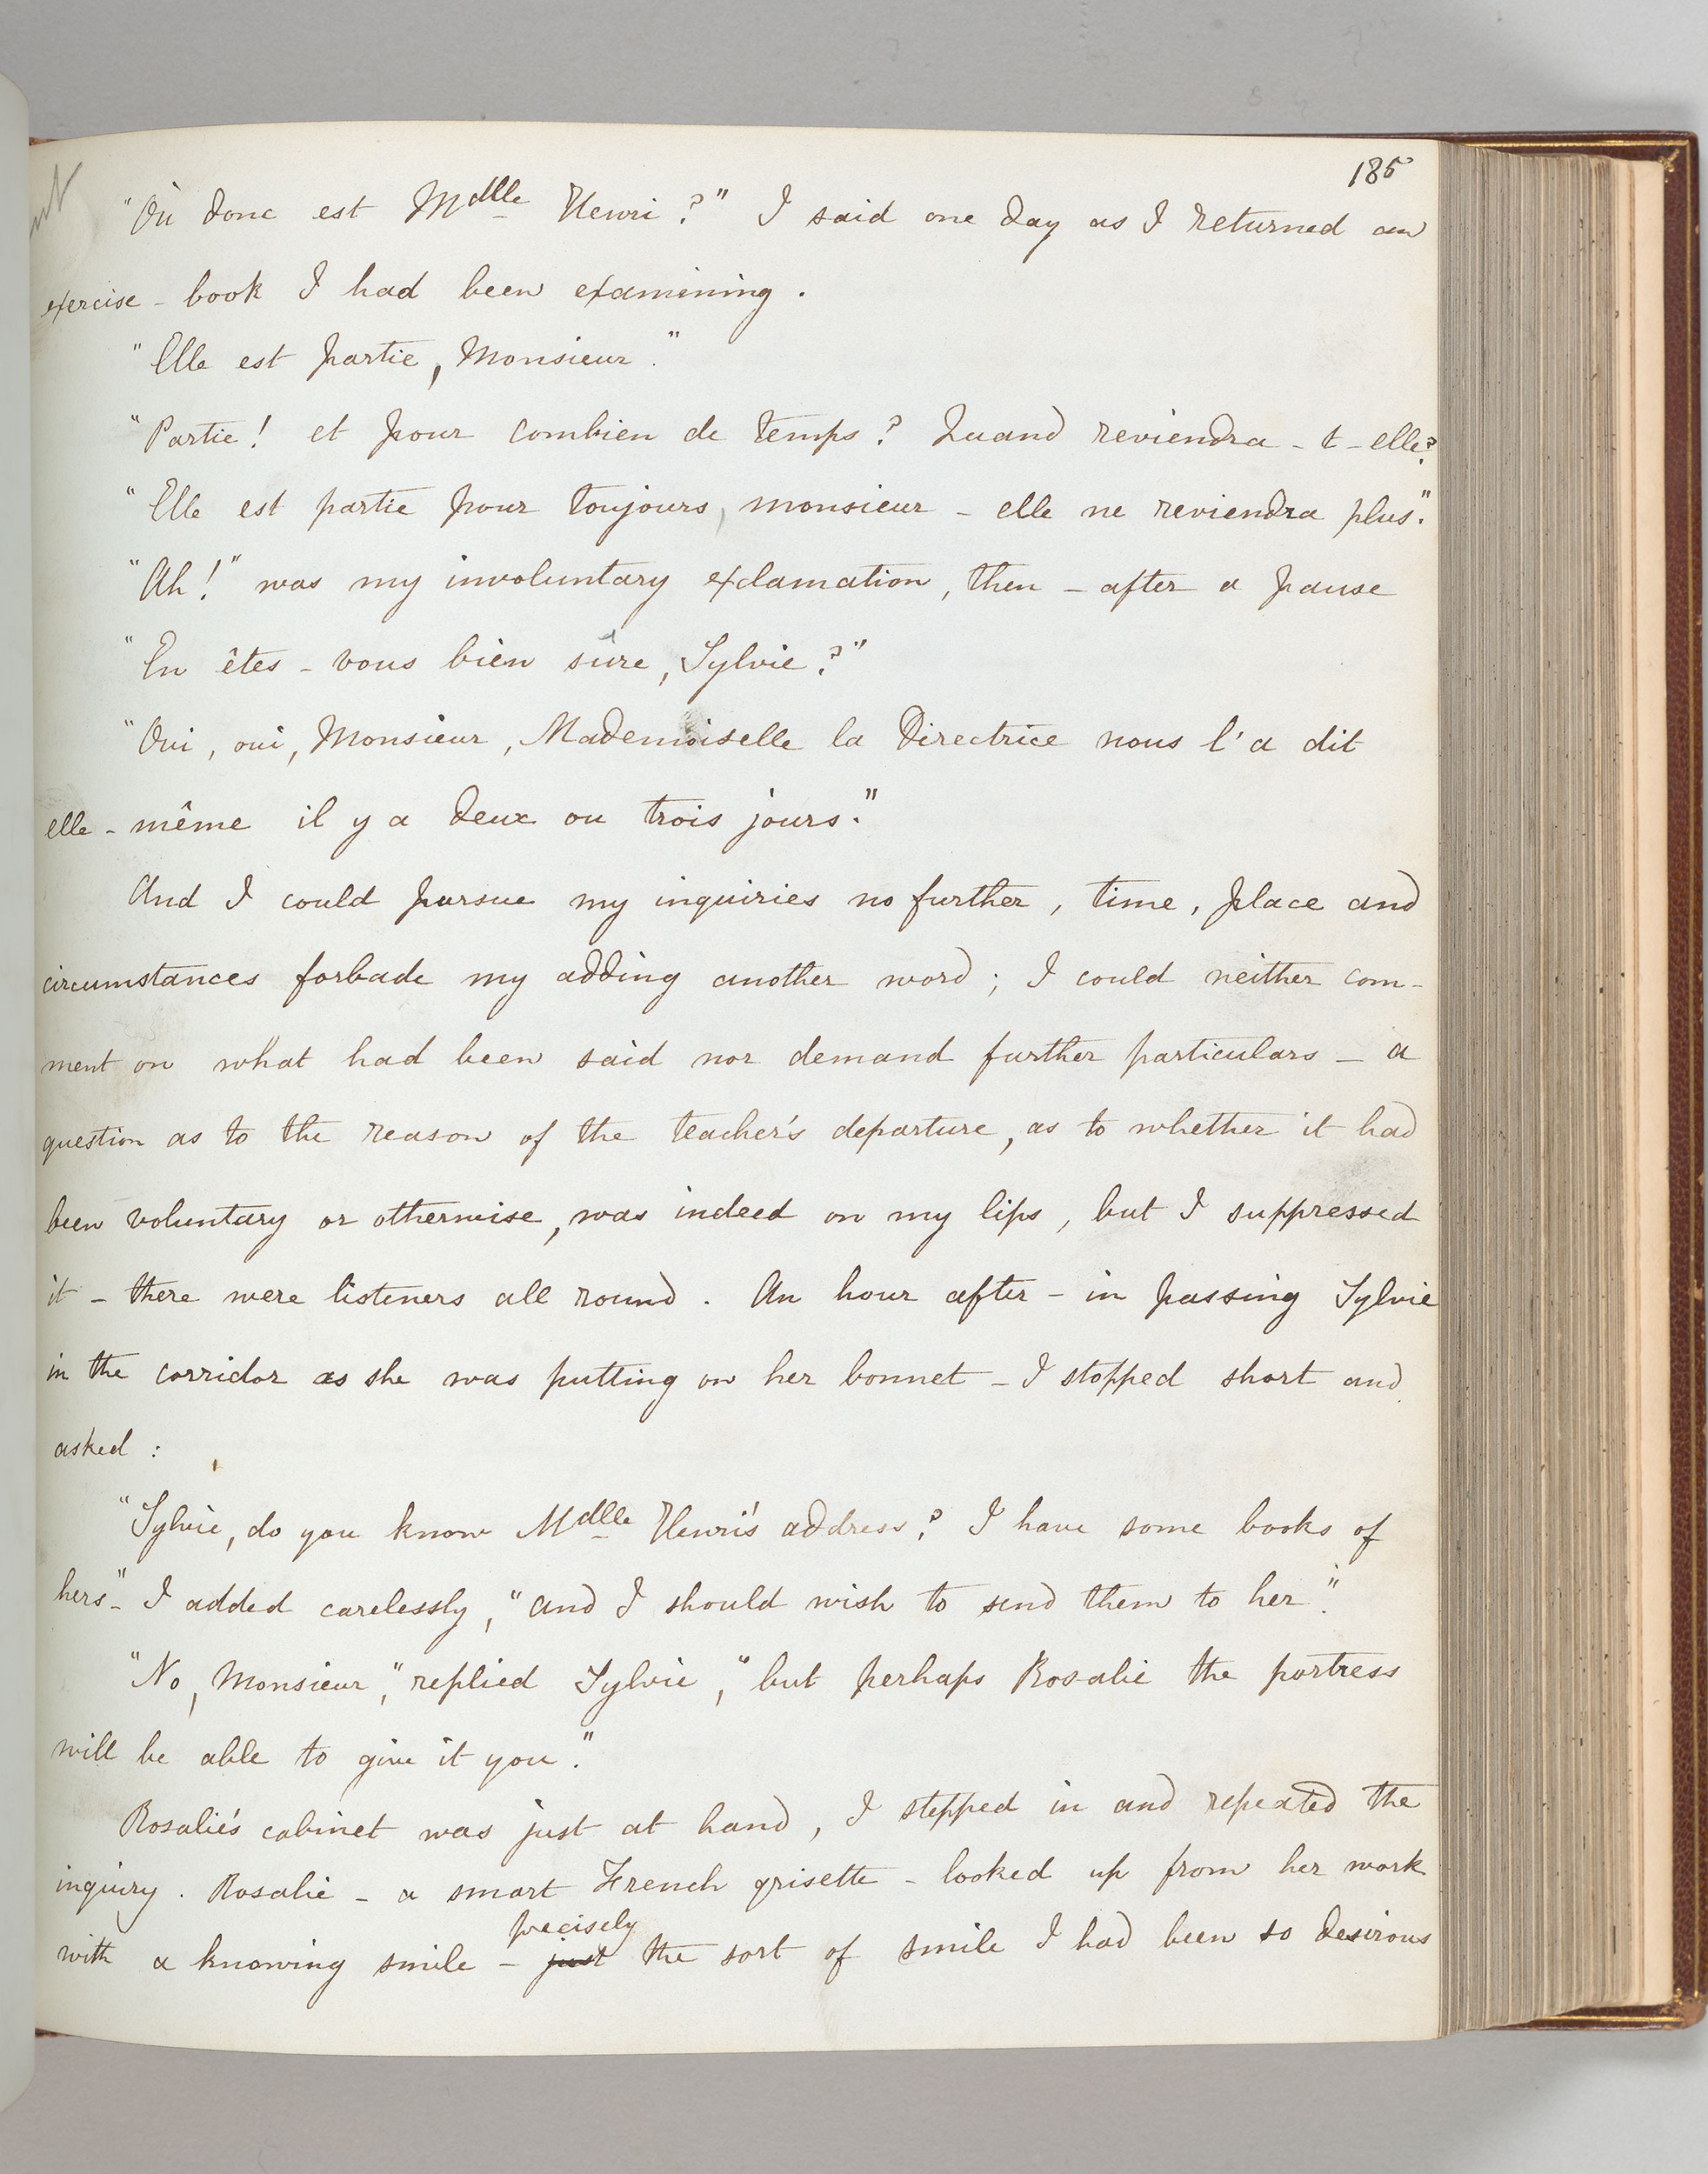 185
"Où donc est Mdlle Henri?" I said one day as I returned an
exercise - book I had been examining.
"Elle est partie, Monsieur."
"Partie! et pour combien de temps? Quand reviendra - t - elle?
"Elle est partie pour toujours, monsieur - elle ne reviendra plus."
"Ah!" was my involuntary exclamation, then - after a pause
"En êtes - vous bien sûre, Sylvie?"
"Oui, oui, Monsieur, Mademoiselle la Directrice nous l'a dit
elle - même il y a deux ou trois jours."
And I could pursue my inquiries no further, time, place and
circumstances forbade my adding another word; I could neither com-
ment on what had been said nor demand further particulars - a
question as to the reason of the teacher's departure, as to whether it had
been voluntary or otherwise, was indeed on my lips, but I suppressed
it - there were listeners all round. An hour after - in passing Sylvie
in the corridor as she was putting on her bonnet - I stopped short and
asked:
"Sylvie, do you know Mdlle Henri's address? I have some books of
hers" - I added carelessly, "and I should wish to send them to her."
"No, Monsieur," replied Sylvie, "but perhaps Rosalie the portress
will be able to give it you."
Rosalie's cabinet was just at hand, I stepped in and repeated the
inquiry. Rosalie - a smart French grisette - looked up from her work
precisely
with a knowing smile - just the sort of smile I had been so desirous